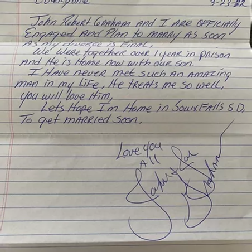 John Robert Graham and I are officially
Engaged and Plan to marry as soon
as my divorce is final.
We were together over 1 year in prison
and He is Home now with our son.
I Have never met such an amazing
man in my life, He treats me so well,
you will love Him,
Lets Hope I'm Home in Sioux Falls S.D.
To get married soon.
Love you
All